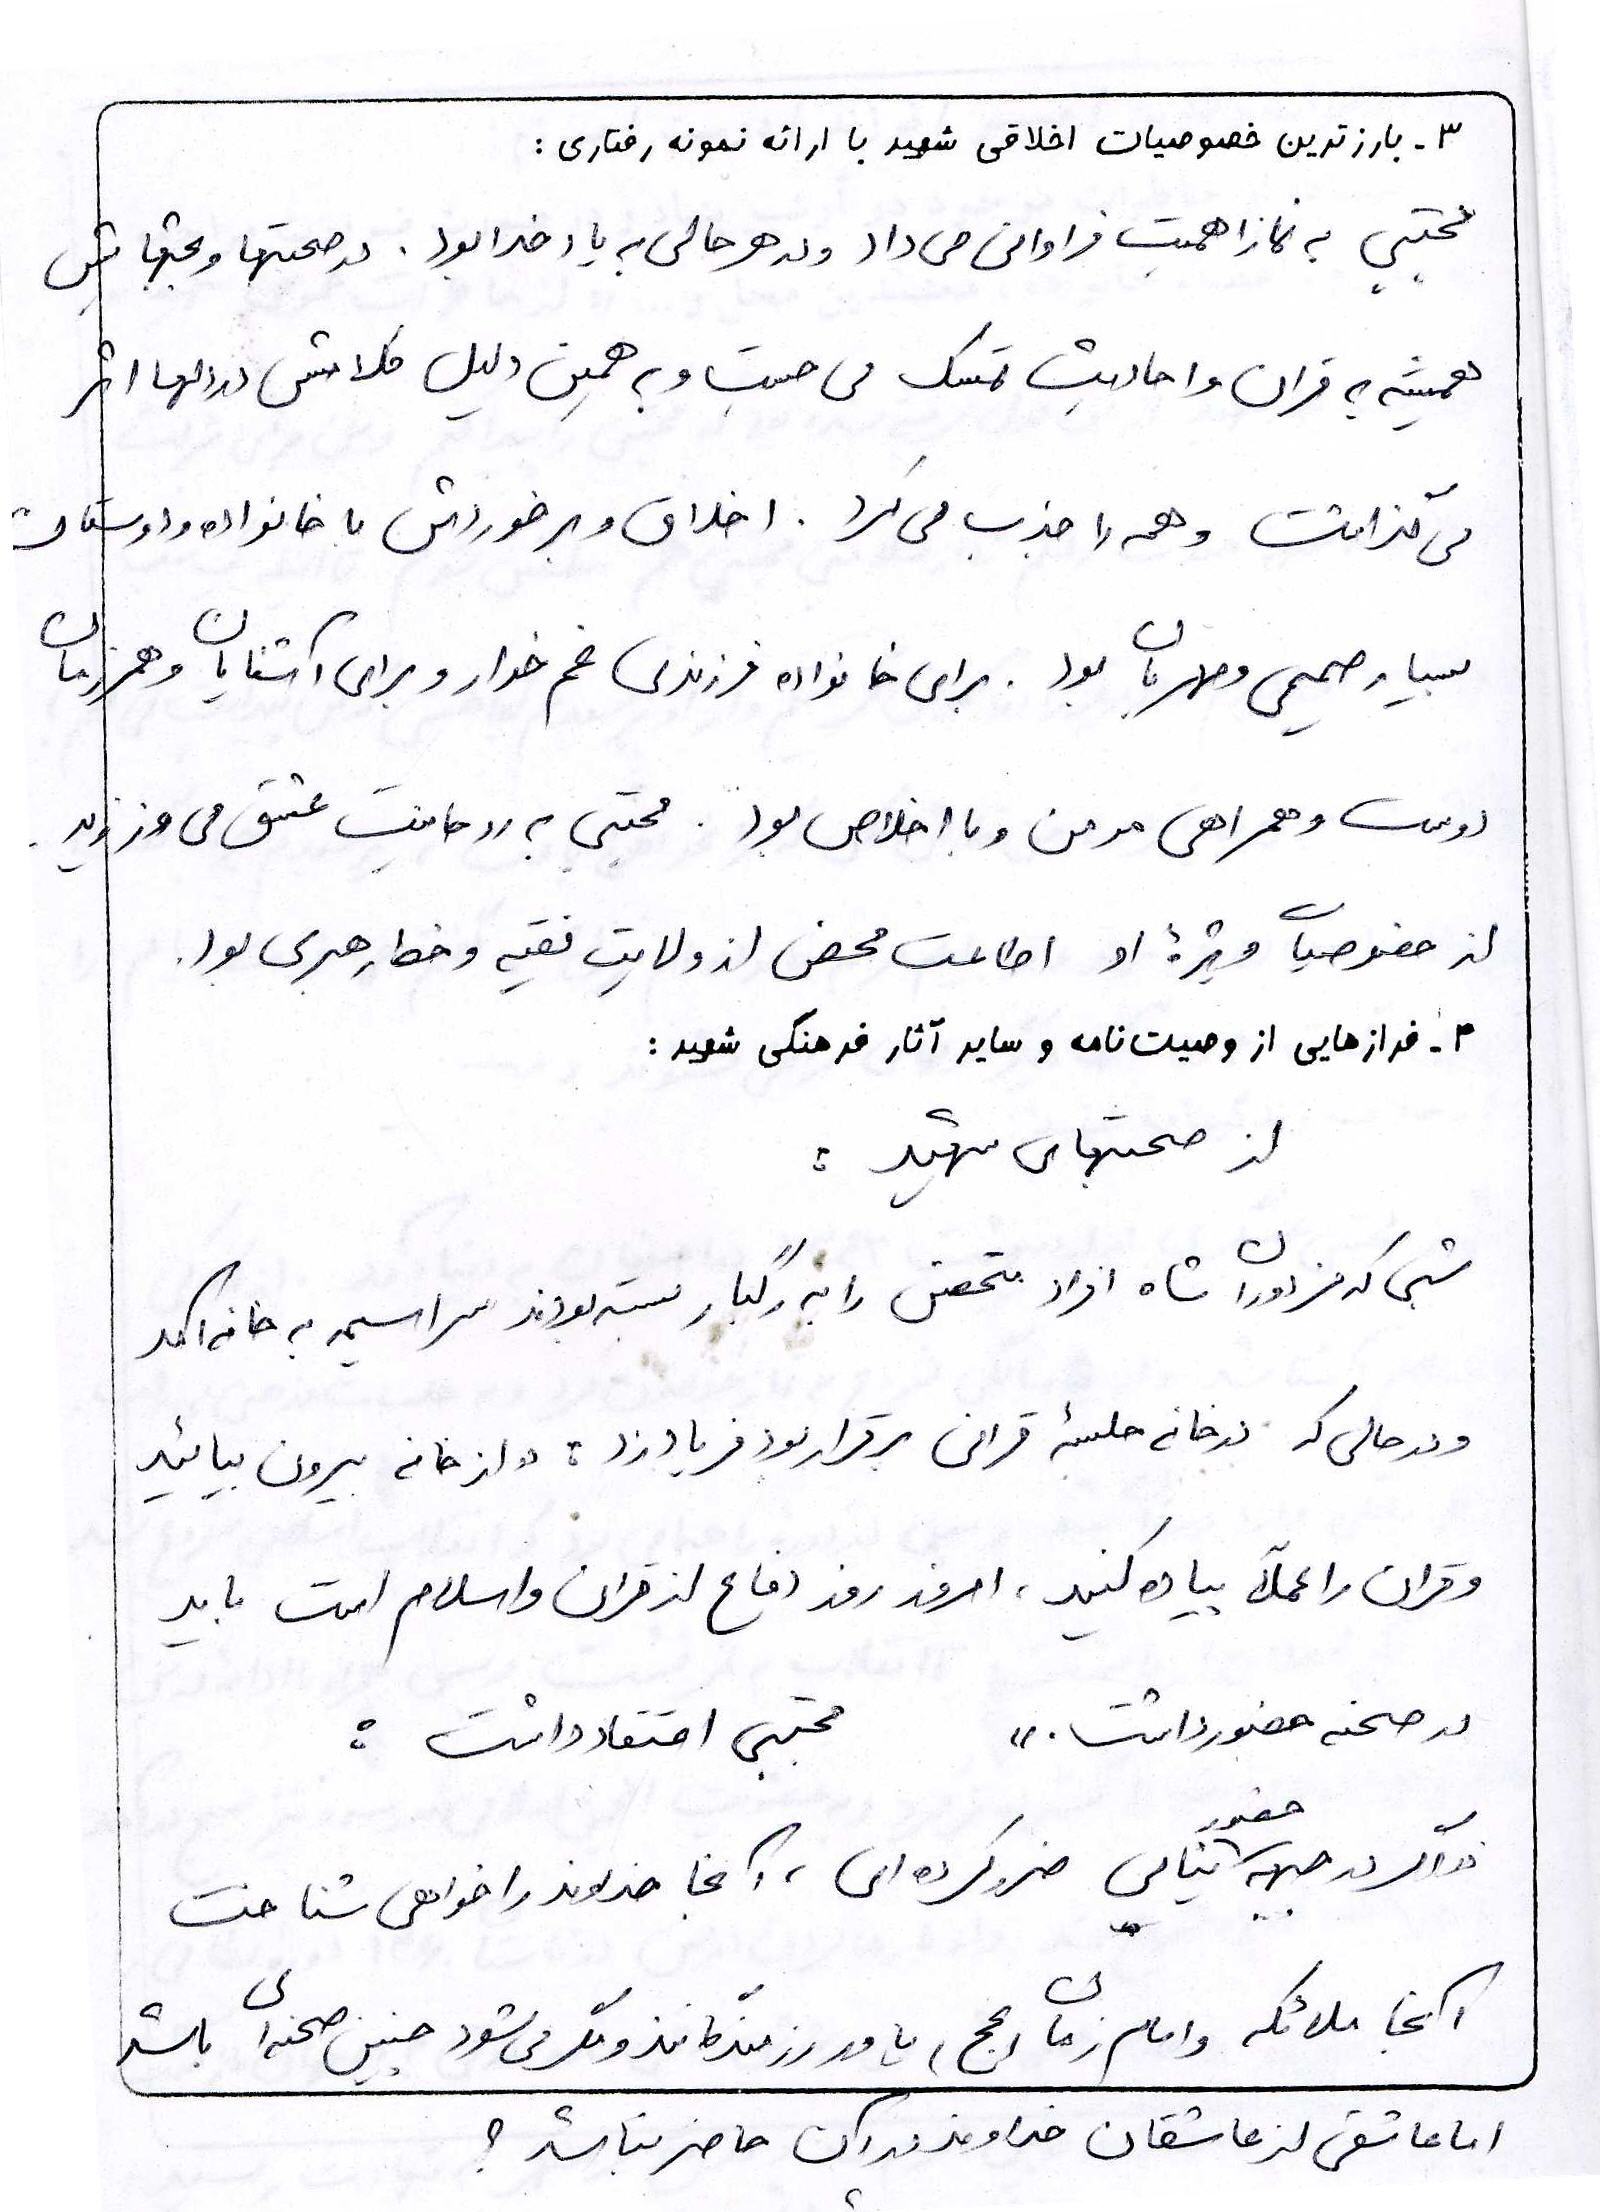 ۳- بارزترین خصوصیات اخلاقی شهید با ارائه نمونه رفتاری :
مجتبی به نماز اهمیت فراوانی می داد و در هر حالی به یاد خدا بود . در صحبتها و بحثهایش
همیشه به قرآن و احادیث تمسک می جست و به همین دلیل کلامش در دلها اثر
می گذاشت و همه را جذب می کرد . اخلاق و برخوردش با خانواده و دوستان
بسیار صمیمی و مهربان بود . برای خانواده فرزندی غم خوار و برای آشنایان و همرزمان
دوست و همراهی مومن و با اخلاص بود . مجتبی به روحانیت عشق می ورزید .
از خصوصیات ویژهٔ او اطاعت محض از ولایت فقیه و خط رهبری بود.
۴- فرازهایی از وصیت‌نامه و سایر آثار فرهنگی شهید :
از صحبتهای شهید :
شبی که مزدوران شاه افراد متحصن را به رگبار بسته بودند سراسیمه به خانه آمد
و در حالی که در خانه جلسهٔ قرآن برقرار بود فریاد زد : « از خانه بیرون بیائید
و قرآن را عملاً پیاده کنید ، امروز روز دفاع از قرآن و اسلام است باید
در صحنه حضور داشت . » مجتبی اعتقاد داشت :
« اگر در جبهه حضور کرده‌ای ، آنجا خداوند را خواهی شناخت
آنجا ملائکه و امام زمان (عج) یاور رزمندگانند و مگر می شود چنین صحنه‌ای باشد
اما عاشقی از عاشقان خداوند در آن حاضر نباشد ؟